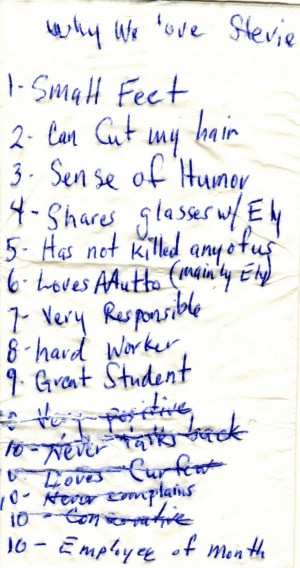 Why We Love Stevie
1- Small Feet
2- Can Cut my hair
3- Sense of Humor
4- Shares glasses w/ Ely
5- Has not killed any of us
6- Loves (mainly Ely)
7- Very Responsible
8- hard Worker
9. Great Student
10 Very positive
10- Never talks back
10 Loves Curfew
10- Never complains
10 - Conservative
10 - Employee of month